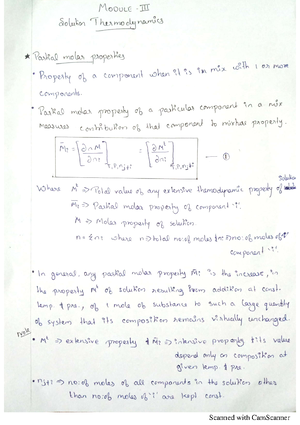 MODULE - III
Solution Thermodynamics
* Partial molar properties
• Property of a component when it is in mix with 1 or more
components.
• Partial molar property of a particular component in a mix
measures contribution of that component to mixture property.
M̄i = [∂nM / ∂ni]T,P,nj≠i = [∂Mt / ∂ni]T,P,nj≠i
Where Mt ⇒ Total value of any extensive thermodynamic property of solution
M̄i ⇒ Partial molar property of component 'i'.
M ⇒ Molar property of solution
n = Σni where n ⇒ total no: of moles & ni ⇒ no: of moles of 'i'
component 'i'.
• In general, any partial molar property M̄i is the increase, in
the property Mt of solution resulting from addition at const.
temp & pre., of 1 mole of substance to such a large quantity
of system that its composition remains virtually unchanged.
Note
• Mt → extensive property & M̄i ⇒ intensive property & its value
depend only on composition at
given temp & pre.
• nj≠i → no: of moles of all components in the solution other
than no: of moles of 'i' are kept const.
Scanned with CamScanner